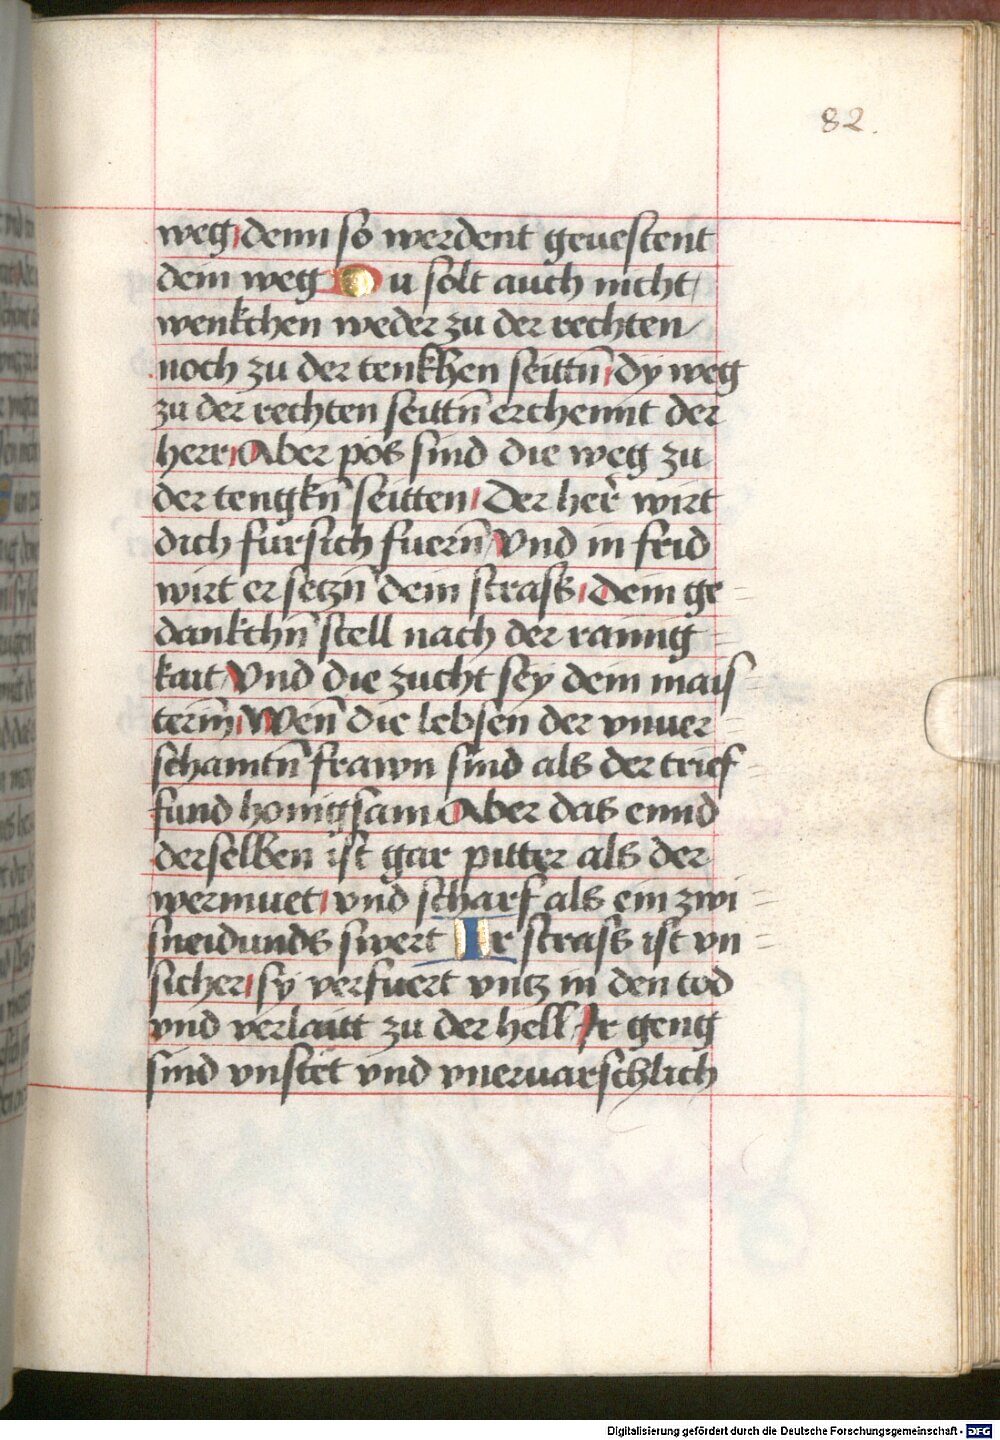 82.
weg, denn so werdent geuestent
dein weg Du solt auch nicht/
wenkchen weder zu der rechten/
noch zu der tenkhen seittn̄, dy weg
zu der rechten seittn̄ erchennt der
herr, Aber pös sind die weg zu
der tengkn̄ seitten, Der her̄ wirt
dich fürsich fuern̄, Vnd in frid
wirt er setzn̄ dein strass, dein ge-
dankchn̄ stell nach der rainig=
kait, Vnd die zucht sey dein mais=
terin̄, Wen̄ die lebsen der vnuer=
schamtn̄ frawn sind als der trief=
fund honigsam Aber das ennd
derselben ist gar pitter als der
wermuet, vnd scharf als ein zwi=
sneidunds swert Ir strass ist vn=
sicher, sy verfuert vntz in den tod
vnd verlaitt zu der hell Ir geng
sind vnstet vnd vneruarschlich
Digitalisierung gefördert durch die Deutsche Forschungsgemeinschaft - DFG